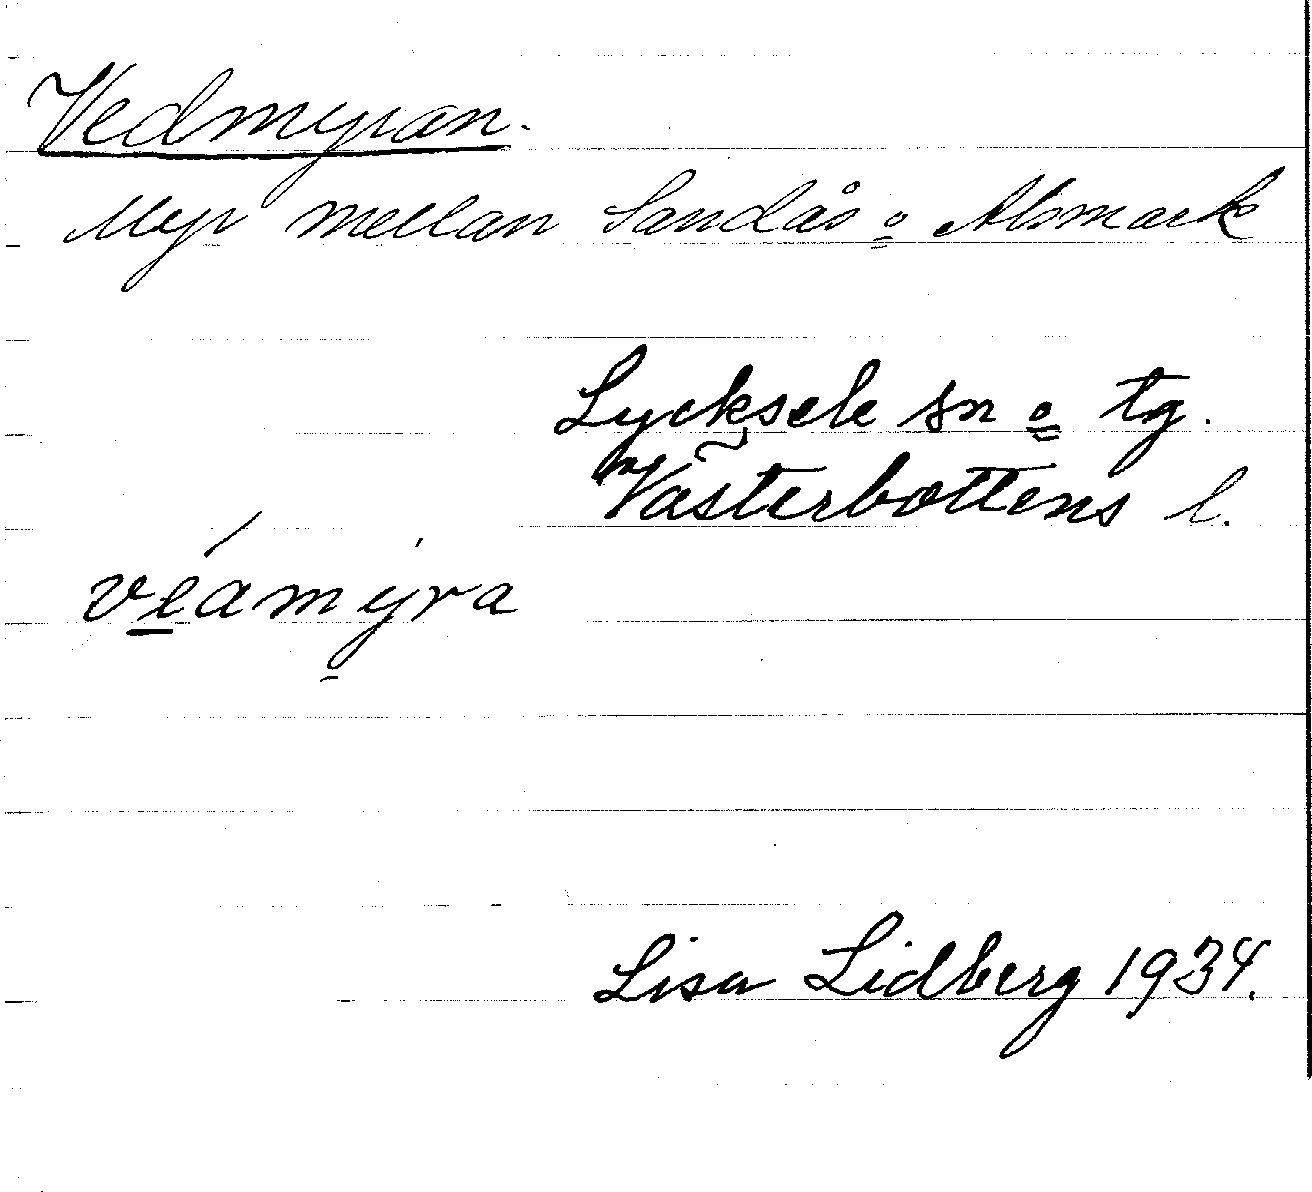 Vedmyran.
Myr mellan Sandås o Alsmark
Lycksele sn o tg.
Västerbottens l.
véamy̱ra
Lisa Lidberg 1934.